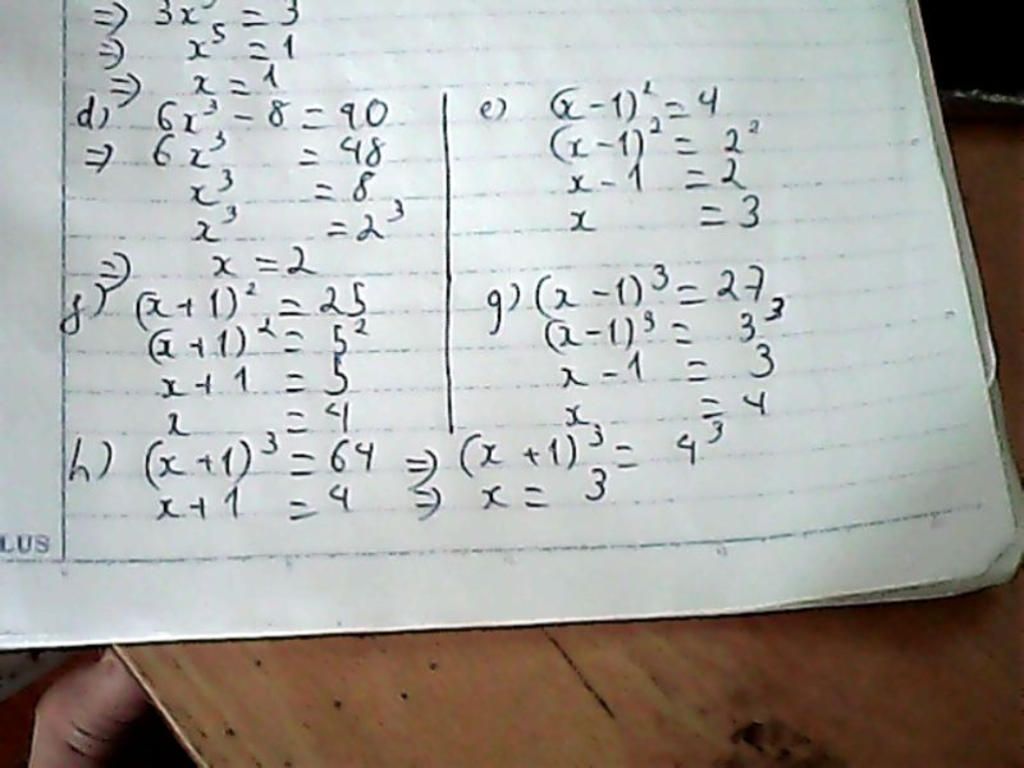 ⇒ 3x⁵ = 3
⇒ x⁵ = 1
⇒ x = 1
d) 6x³ - 8 = 40
⇒ 6x³ = 48
x³ = 8
x³ = 2³
⇒ x = 2
e) (x-1)² = 4
(x-1)² = 2²
x-1 = 2
x = 3
f) (x+1)² = 25
(x+1)² = 5²
x+1 = 5
x = 4
g) (x-1)³ = 27
(x-1)³ = 3³
x-1 = 3
x = 4
h) (x+1)³ = 64 ⇒ (x+1)³ = 4³
x+1 = 4 ⇒ x = 3
LUS